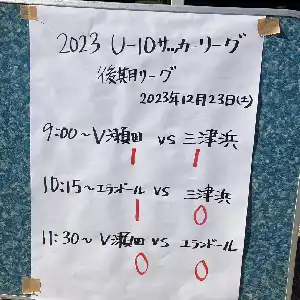 2023 U-10サッカーリーグ
後期リーグ
2023年12月23日(土)
9:00〜V瀬田 VS 三津浜
1 1
10:15〜エラドール VS 三津浜
1 0
11:30〜V瀬田 VS エランドール
0 0